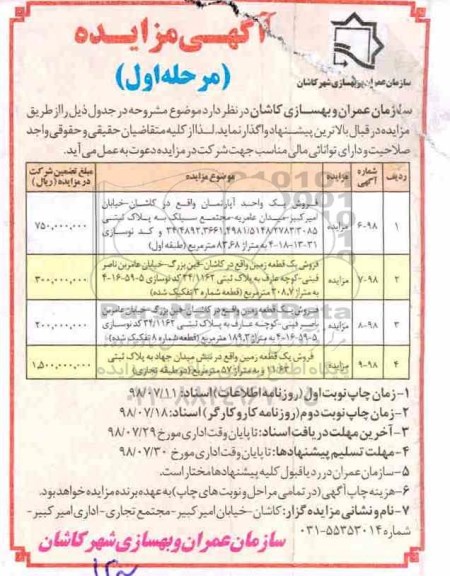 آگهی مزایده
(مرحله اول)
سازمان عمران و بهسازی شهر کاشان
سازمان عمران و بهسازی کاشان در نظر دارد موضوع مشروحه در جدول ذیل را از طریق
مزایده در قبال بالاترین پیشنهاد واگذار نماید. لذا از کلیه متقاضیان حقیقی و حقوقی واجد
صلاحیت و دارای توانائی مالی مناسب جهت شرکت در مزایده دعوت به عمل می آید.
ردیف شماره آگهی مزایده موضوع مزایده مبلغ تضمین شرکت در مزایده (ریال)
۱ ۶-۹۸ مزایده فروش یک واحد آپارتمان واقع در کاشان-خیابان ۷۵۰,۰۰۰,۰۰۰
امیرکبیر-میدان عامریه-مجتمع سیلک به پلاک ثبتی
و کد نوسازی
۴-۱۸-۱۳-۳۱ به متراژ ۸۳,۶۸ مترمربع (طبقه اول)
۲ ۷-۹۸ مزایده فروش یک قطعه زمین واقع در کاشان-فین بزرگ-خیابان عامربن ناصر ۳۰۰,۰۰۰,۰۰۰
فینی-کوچه عارف به پلاک ثبتی ۳۴/۱۱۶۲ کد نوسازی ۵-۵۹-۱۶-۴
به متراژ ۳۰۸,۷ مترمربع (قطعه شماره ۳ تفکیک شده)
۳ ۸-۹۸ مزایده فروش یک قطعه زمین واقع در کاشان-فین بزرگ-خیابان عامربن ۲۰۰,۰۰۰,۰۰۰
ناصر فینی-کوچه عارف به پلاک ثبتی ۳۴/۱۱۶۲ کد نوسازی
۵-۵۹-۱۶-۴ به متراژ ۱۸۹,۳ مترمربع (قطعه شماره ۸ تفکیک شده)
۴ ۹-۹۸ مزایده فروش یک قطعه زمین واقع در نبش میدان جهاد به پلاک ثبتی ۱,۵۰۰,۰۰۰,۰۰۰
و به متراژ ۵۷ مترمربع (دو طبقه تجاری)
۱-زمان چاپ نوبت اول (روزنامه اطلاعات) اسناد: ۹۸/۰۷/۱۱
۲-زمان چاپ نوبت دوم (روزنامه کار و کارگر) اسناد: ۹۸/۰۷/۱۸
۳-آخرین مهلت دریافت اسناد: تا پایان وقت اداری مورخ ۹۸/۰۷/۲۹
۴-مهلت تسلیم پیشنهادها: تا پایان وقت اداری مورخ ۹۸/۰۷/۳۰
۵-سازمان عمران در رد یا قبول کلیه پیشنهادها مختار است.
۶-هزینه چاپ آگهی (در تمامی مراحل و نوبت های چاپ) به عهده برنده مزایده خواهد بود.
۷-نام و نشانی مزایده گزار: کاشان-خیابان امیرکبیر-مجتمع تجاری-اداری امیرکبیر-
شماره ۵۵۳۵۳۰۱۴-۰۳۱
سازمان عمران و بهسازی شهر کاشان